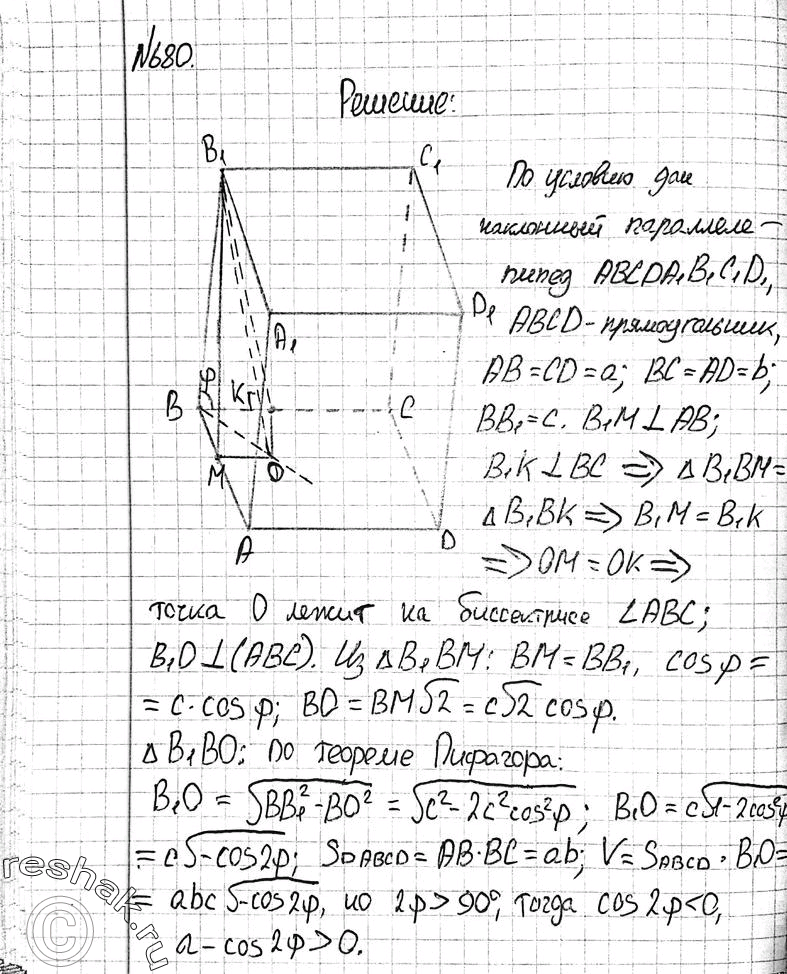 №680.
Решение:
B₁
C₁
A₁
D₁
φ
B
K
C
M
O
A
D
По условию дан
наклонный параллеле-
пипед ABCDA₁B₁C₁D₁,
ABCD - прямоугольник,
AB = CD = a; BC = AD = b;
BB₁ = c. B₁M ⊥ AB;
B₁K ⊥ BC ⇒ △B₁BM =
△B₁BK ⇒ B₁M = B₁K
⇒ OM = OK ⇒
точка O лежит на биссектрисе ∠ABC;
B₁O ⊥ (ABC). Из △B₁BM: BM = BB₁, cos φ =
= c · cos φ; BO = BM√2 = c√2 cos φ.
△B₁BO: по теореме Пифагора:
B₁O = √(BB₁² - BO²) = √(c² - 2c²cos²φ); B₁O = c√(1 - 2cos²φ)
= c√(-cos2φ); S▱ABCD = AB·BC = ab; V = SABCD · B₁O =
= abc √(-cos2φ), но 2φ > 90°, тогда cos 2φ < 0,
а - cos 2φ > 0.
reshak.ru
©